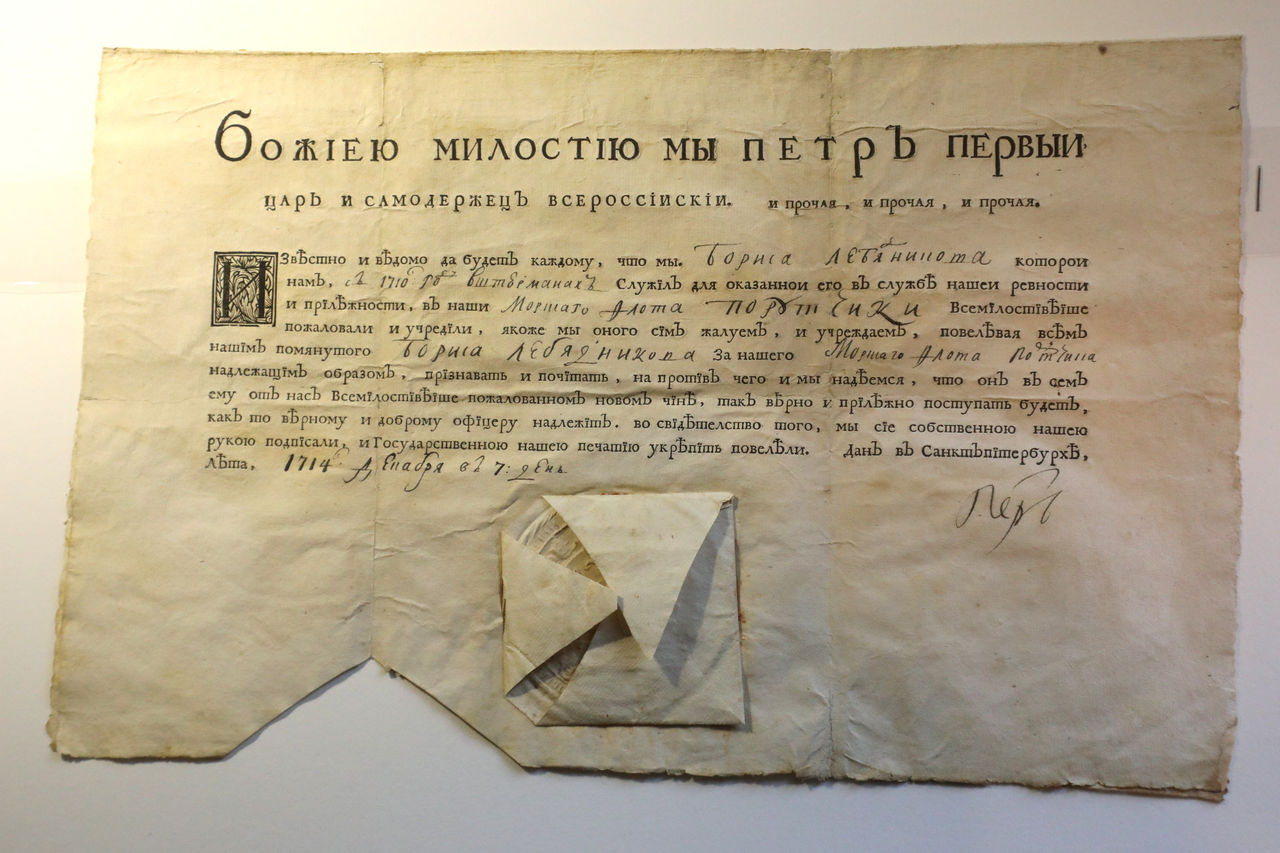 Божіею милостію мы петръ первыи
царь и самодержецъ всероссіискіи. и прочая, и прочая, и прочая.
Извѣстно и вѣдомо да будетъ каждому, что мы. Бориса которои
намъ, съ 1710 Служілъ для оказаннои его въ службѣ нашеи ревности
и прілѣжности, въ наши Морскаго флота поручики Всемілостівѣіше
пожаловали и учреділи, якоже мы оного сімъ жалуемъ, и учреждаемъ, повелѣвая всѣмъ
нашімъ помянутого Бориса За нашего Морскаго флота
надлежащімъ образомъ, прізнавать и почітать, на протівъ чего и мы надѣемся, что онъ въ семъ
ему отъ насъ Всемілостівѣіше пожалованномъ новомъ чінѣ, такъ вѣрно и прілѣжно поступать будетъ,
какъ то вѣрному и доброму офіцеру надлежітъ. во свідѣтелство того, мы сіе собственною нашею
рукою подпісали, и Государственною нашею печатію укрѣпіть повелѣли. Данъ въ Санктъпітербурхѣ,
Лѣта, 1714 Декабря въ 7: день
Петръ